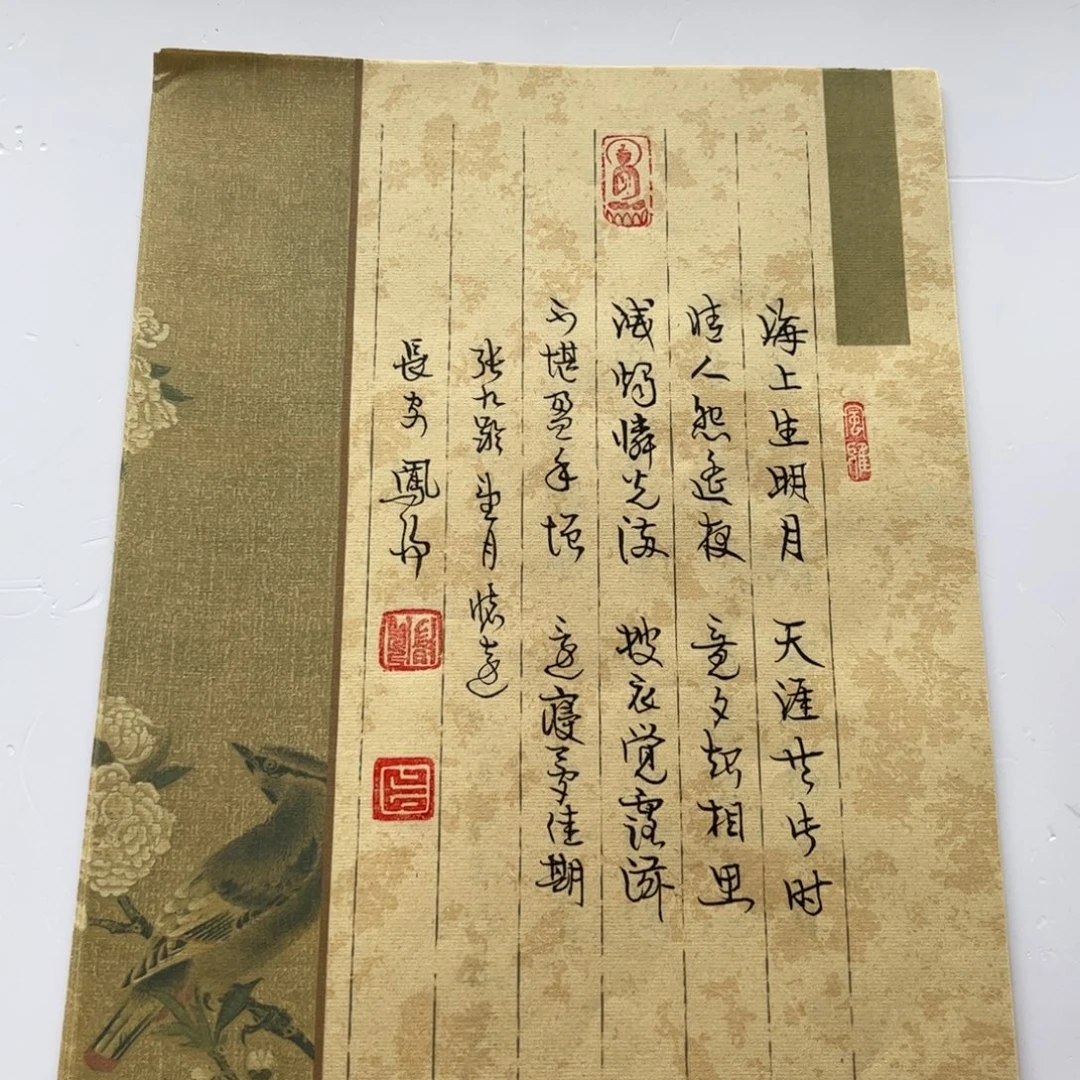 風雅
海上生明月 天涯共此时
情人怨遥夜 竟夕起相思
滅燭憐光滿 披衣觉露滋
不堪盈手赠 还寝夢佳期
张九龄 望月 懷遠
長安 鳳